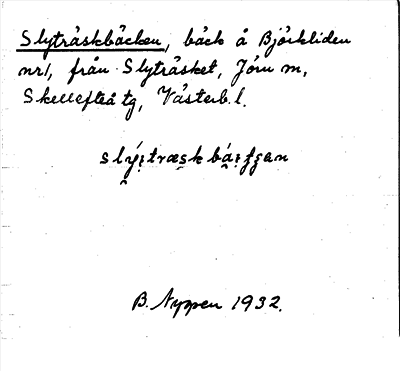 Slyträskbäcken, bäck å Björkliden
nr1, från Slyträsket, Jörn sn,
Skellefteå tg, Västerb. l.
B. Nyppen 1932.